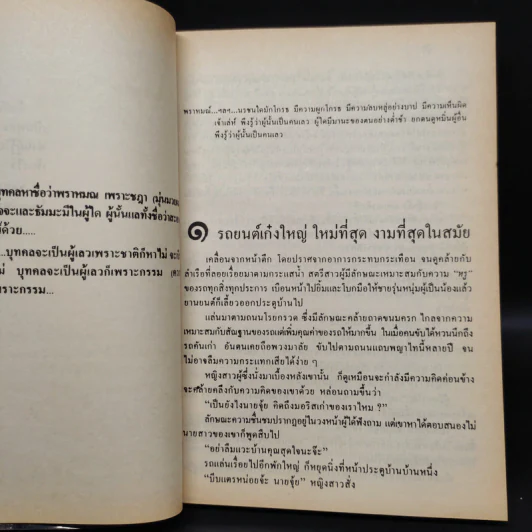 บุคคลหาชื่อว่าพราหมณ เพราะชฎา
จะและธัมมะมีในผู้ใด ผู้นั้นแลทั้งชื่อว่า
ด้วย.....
...บุคคลจะเป็นผู้เลวเพราะชาติก็หาไม่
บุคคลจะเป็นผู้เลวก็เพราะกรรม
เพราะกรรม...
พราหมณ์...ฯลฯ...นรชนใดมักโกรธ มีความผูกโกรธ มีความลบหลู่อย่างบาป มีความเห็นผิด
เจ้าเล่ห์ พึงรู้ว่าผู้นั้นเป็นคนเลว ผู้ใดมีมานะของตนอย่างต่ำช้า ยกตนดูหมิ่นผู้อื่น
พึงรู้ว่าผู้นั้นเป็นคนเลว
๑ รถยนต์เก๋งใหญ่ ใหม่ที่สุด งามที่สุดในสมัย
เคลื่อนจากหน้าตึก โดยปราศจากอาการกระทบกระเทือน จนดูคล้ายกับ
ลำเรือที่ลอยเรื่อยมาตามกระแสน้ำ สตรีสาวผู้มีลักษณะเหมาะสมกับความ “หรู”
ของรถทุกสิ่งทุกประการ เบือนหน้าไปยิ้มและโบกมือให้ชายรุ่นหนุ่มผู้เป็นน้องแล้ว
ยานยนต์ก็เลี้ยวออกประตูบ้านไป
แล่นมาตามถนนโรยกรวด ซึ่งมีลักษณะคล้ายถาดขนมครก ไกลจากความ
เหมาะสมกับสัณฐานของรถแต่เพิ่มคุณค่าของรถให้มากขึ้น ในเมื่อคนขับได้หวนนึกถึง
รถคันเก่า อันตนเคยถือพวงมาลัย ขับไปตามถนนแถบพญาไทนี้หลายปี จน
ไม่อาจลืมความกระแทกเสียได้ง่าย ๆ
หญิงสาวผู้ซึ่งนั่งมาเบื้องหลังเขานั้น ก็ดูเหมือนจะกำลังมีความคิดค่อนข้าง
จะคล้ายคลึงกับความคิดของเขาด้วย หล่อนถามขึ้นว่า
“เป็นยังไงนายจุ้ย คิดถึงมอริสเก่าของเราไหม ?”
ลักษณะความชื่นชมปรากฏอยู่ในวงหน้าผู้ได้ฟังถาม แต่เขาหาได้ตอบสนองไม่
นายสาวของเขาก็พูดสืบไป
“อย่าลืมแวะบ้านคุณสุดใจนะจ๊ะ”
รถแล่นเรื่อยไปอีกพักใหญ่ ก็หยุดนิ่งที่หน้าประตูบ้านบ้านหนึ่ง
“บีบแตรหน่อยจ้ะ นายจุ้ย” หญิงสาวสั่ง